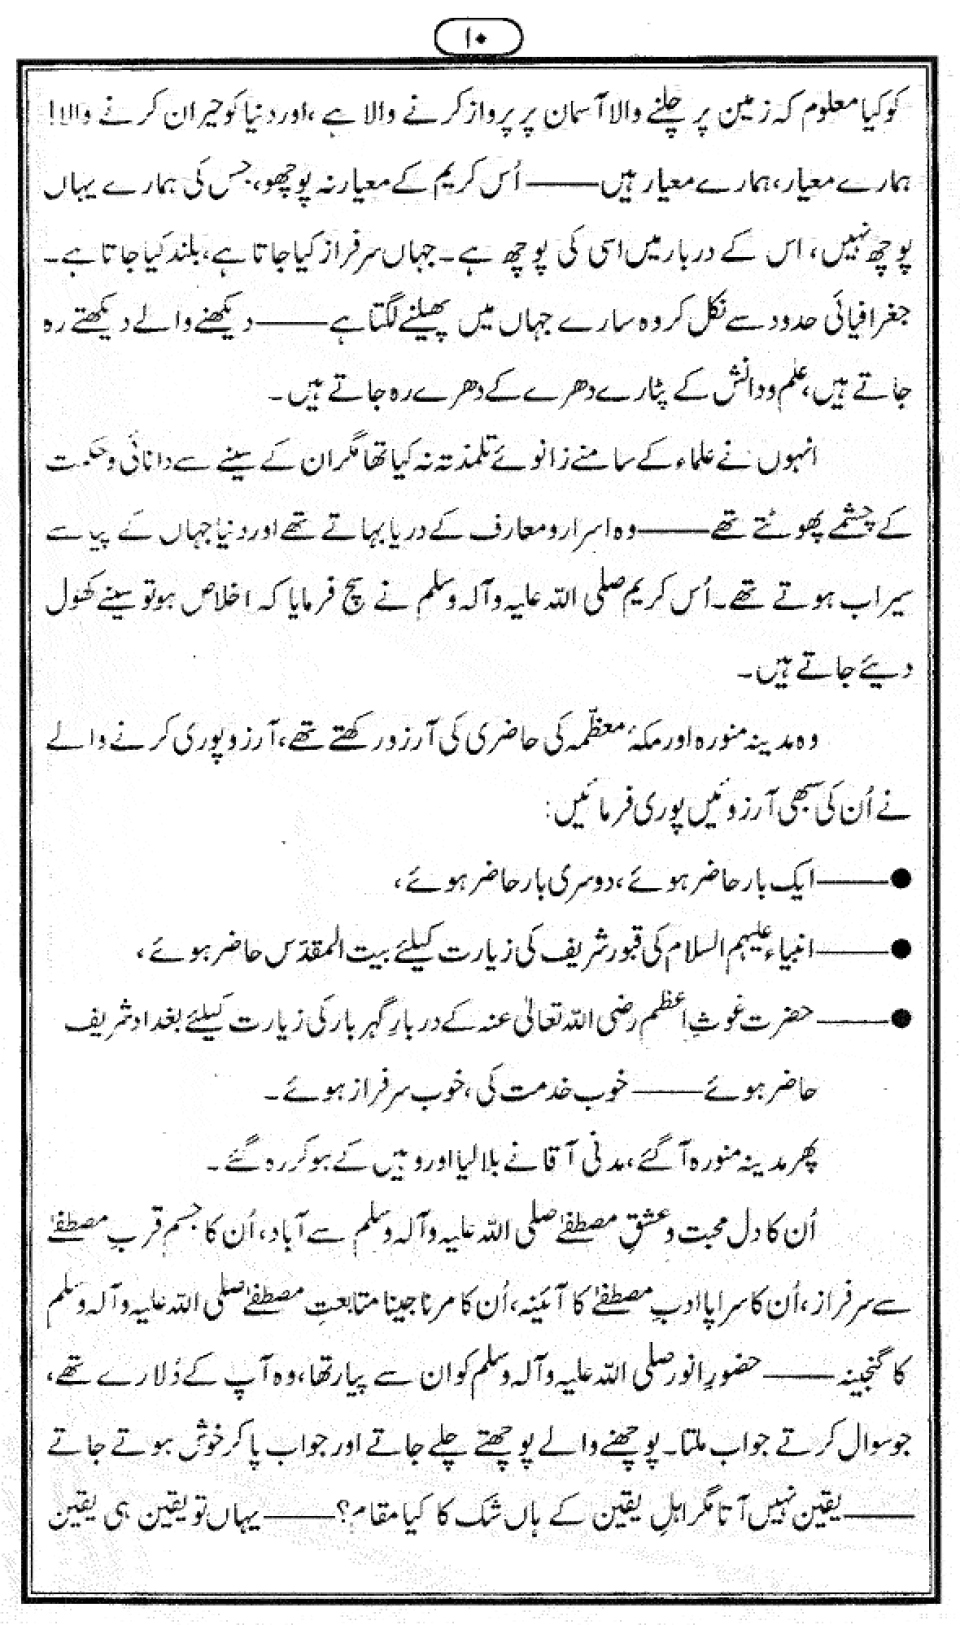 ۱۰
کو کیا معلوم کہ زمین پر چلنے والا آسمان پر پرواز کرنے والا ہے، اور دنیا کو حیران کرنے والا!
ہمارے معیار، ہمارے معیار ہیں —— اُس کریم کے معیار نہ پوچھو، جس کی ہمارے یہاں
پوچھ نہیں، اس کے دربار میں اسی کی پوچھ ہے۔ جہاں سرفراز کیا جاتا ہے، بلند کیا جاتا ہے۔
جغرافیائی حدود سے نکل کر وہ سارے جہاں میں پھیلنے لگتا ہے —— دیکھنے والے دیکھتے رہ
جاتے ہیں، علم و دانش کے پٹارے دھرے کے دھرے رہ جاتے ہیں۔
انہوں نے علماء کے سامنے زانوئے تلمذ تہ نہ کیا تھا مگر ان کے سینے سے دانائی و حکمت
کے چشمے پھوٹتے تھے —— وہ اسرار و معارف کے دریا بہاتے تھے اور دنیا جہاں کے پیاسے
سیراب ہوتے تھے۔ اُس کریم صلی اللہ علیہ وآلہ وسلم نے سچ فرمایا کہ اخلاص ہو تو سینے کھول
دیئے جاتے ہیں۔
وہ مدینہ منورہ اور مکۂ معظّمہ کی حاضری کی آرزو رکھتے تھے، آرزو پوری کرنے والے
نے اُن کی سبھی آرزوئیں پوری فرمائیں:
● —— ایک بار حاضر ہوئے، دوسری بار حاضر ہوئے،
● —— انبیاء علیہم السلام کی قبور شریف کی زیارت کیلئے بیت المقدّس حاضر ہوئے،
● —— حضرت غوثِ اعظم رضی اللہ تعالیٰ عنہ کے دربارِ گہر بار کی زیارت کیلئے بغداد شریف
حاضر ہوئے —— خوب خدمت کی، خوب سرفراز ہوئے۔
پھر مدینہ منورہ آ گئے، مدنی آقا نے بلا لیا اور وہیں کے ہو کر رہ گئے۔
اُن کا دل محبت و عشقِ مصطفےٰ صلی اللہ علیہ وآلہ وسلم سے آباد، اُن کا جسم قربِ مصطفےٰ
سے سرفراز، اُن کا سراپا ادبِ مصطفےٰ کا آئینہ، اُن کا مرنا جینا متابعتِ مصطفےٰ صلی اللہ علیہ وآلہ وسلم
کا گنجینہ —— حضورِ انور صلی اللہ علیہ وآلہ وسلم کو ان سے پیار تھا، وہ آپ کے دُلارے تھے،
جو سوال کرتے جواب ملتا۔ پوچھنے والے پوچھتے چلے جاتے اور جواب پا کر خوش ہوتے جاتے
—— یقین نہیں آتا مگر اہلِ یقین کے ہاں شک کا کیا مقام؟ —— یہاں تو یقین ہی یقین